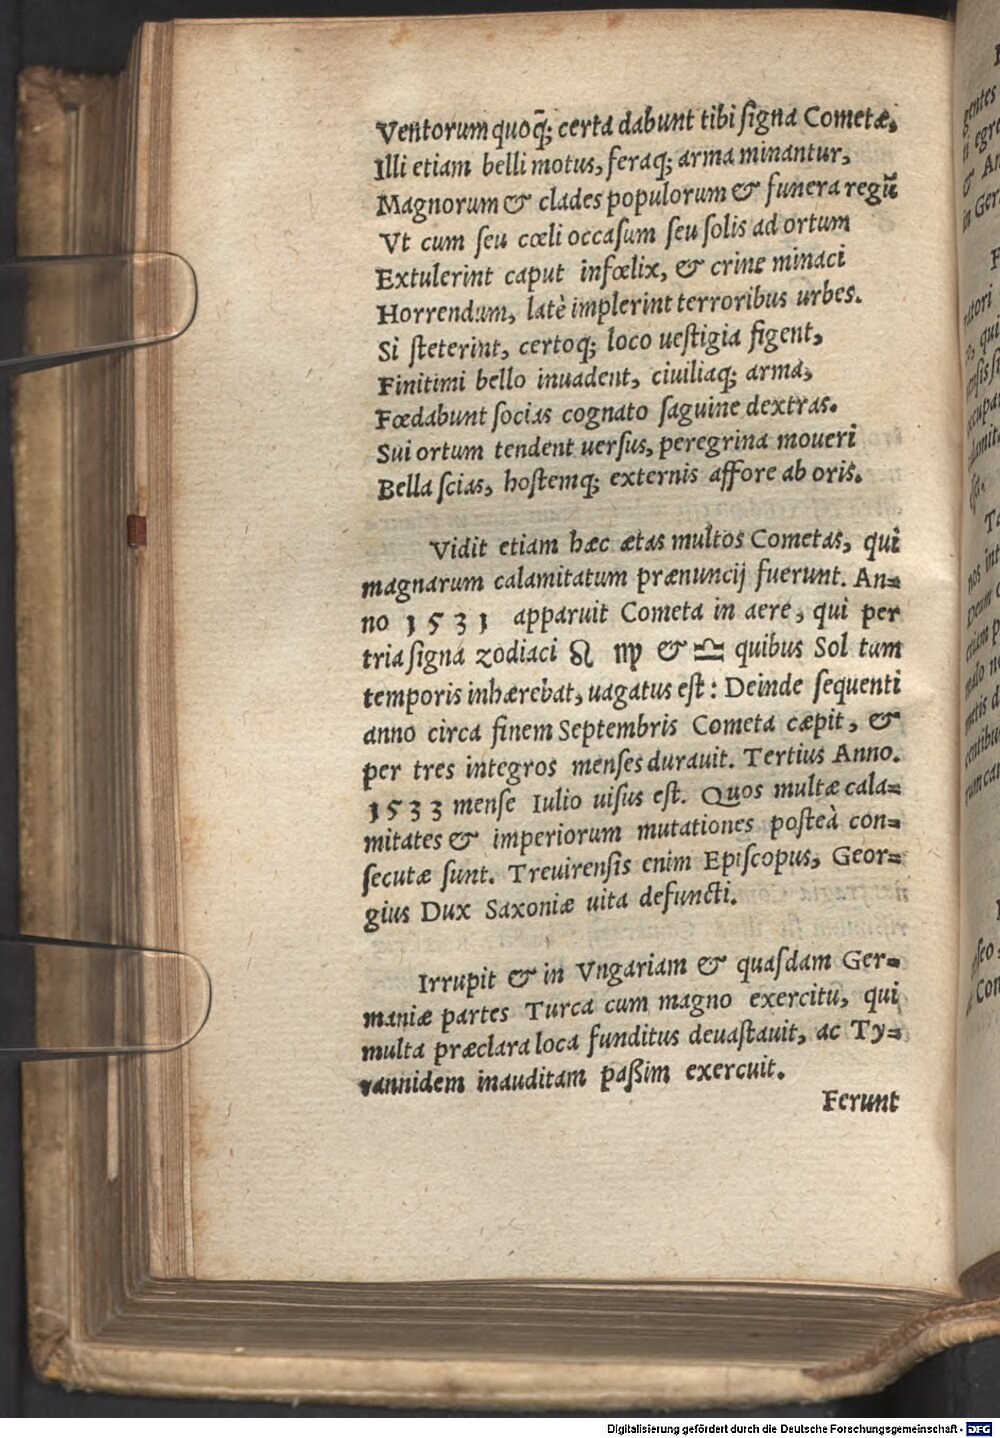 Ventorum quoq̃; certa dabunt tibi ſigna Cometæ,
Illi etiam belli motus, feraq; arma minantur,
Magnorum & clades populorum & funera regū
Vt cum ſeu cœli occaſum ſeu ſolis ad ortum
Extulerint caput infœlix, & crine minaci
Horrendum, latè implerint terroribus urbes.
Si ſteterint, certoq; loco ueſtigia figent,
Finitimi bello inuadent, ciuiliaq; arma,
Fœdabunt ſocias cognato ſaguine dextras.
Sui ortum tendent uerſus, peregrina moueri
Bella ſcias, hoſtemq; externis affore ab oris.
Vidit etiam hæc ætas multos Cometas, qui
magnarum calamitatum prænuncij fuerunt. An-
no 1531 apparuit Cometa in aere, qui per
tria ſigna zodiaci ♌ ♍ & ♎ quibus Sol tum
temporis inhærebat, uagatus eſt: Deinde ſequenti
anno circa finem Septembris Cometa cæpit, &
per tres integros menſes durauit. Tertius Anno.
1533 menſe Iulio uiſus eſt. Quos multæ cala-
mitates & imperiorum mutationes poſteà con-
ſecutæ ſunt. Treuirenſis enim Epiſcopus, Geor-
gius Dux Saxoniæ uita defuncti.
Irrupit & in Vngariam & quaſdam Ger-
maniæ partes Turca cum magno exercitu, qui
multa præclara loca funditus deuaſtauit, ac Ty-
rannidem inauditam paßim exercuit.
Ferunt
gentes
& An
in Ger
Digitalisierung gefördert durch die Deutsche Forschungsgemeinschaft - DFG